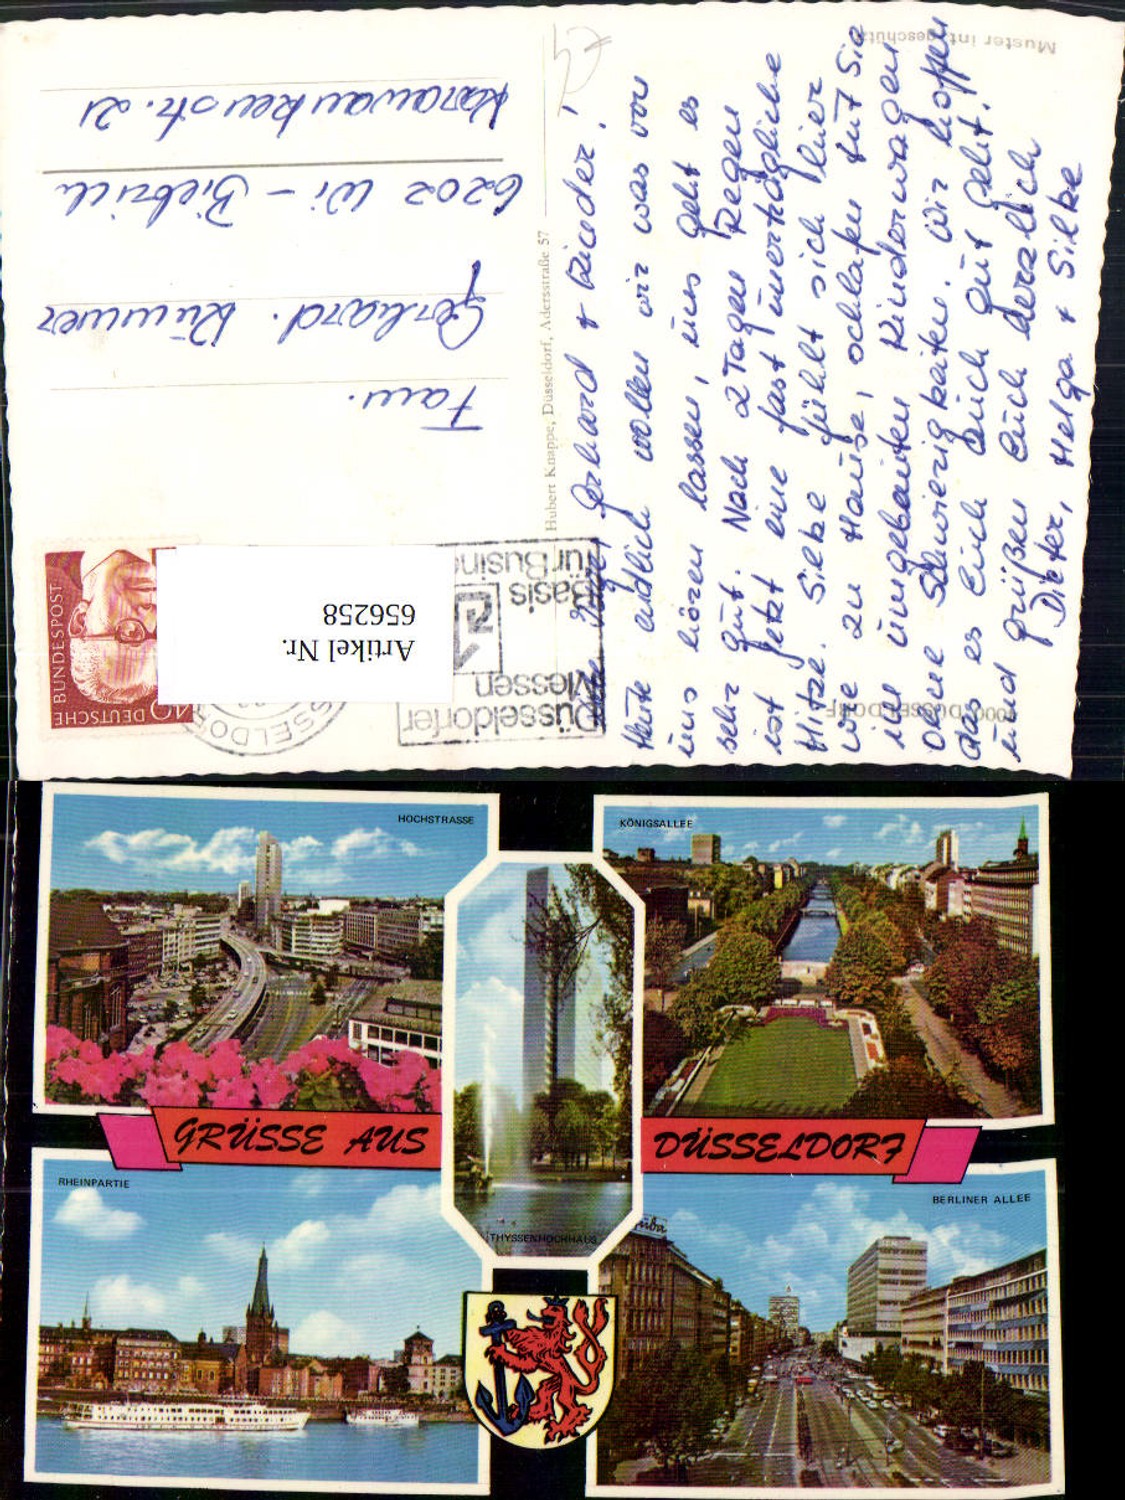 Muster int. geschützt
Gerhard + Kinder!
Heute endlich wollen wir was von
uns hören lassen, uns geht es
sehr gut. Nach 2 Tagen Regen
ist jetzt eine fast unerträgliche
Hitze. Silke fühlt sich hier
wie zu Hause, schlafen tut Sie
im umgebauten Kinderwagen
ohne Schwierigkeiten. Wir hoffen
das es Euch auch gut geht!
und grüßen Euch herzlich
Dieter, Helga + Silke
4000 DÜSSELDORF
Hubert Knappe, Düsseldorf, Adersstraße 57
DEUTSCHE
BUNDESPOST
40
Düsseldorfer
Messen
Basis
für Busin
SSELDO
Artikel Nr.
656258
Fam.
Gerhard
6202 Wi - Biebrich
Karawankenstr. 21
HOCHSTRASSE
KÖNIGSALLEE
GRÜSSE AUS
DÜSSELDORF
THYSSENHOCHHAUS
RHEINPARTIE
BERLINER ALLEE